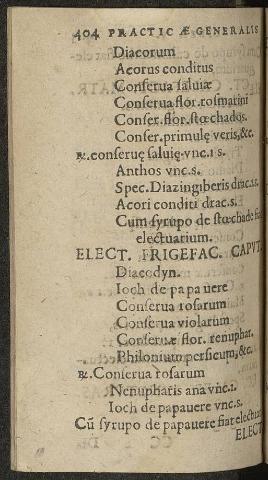 404 PRACTICÆ GENERALIS
Diacorum
Acorus conditus
Conserua saluiæ
Conserua flor. rosmarini
Conser. flor. stœchados.
Conser. primulę veris, &c.
℞. conseruę saluię. vnc. 1 s.
Anthos vnc. s.
Spec. Diazingiberis drac. ss.
Acori conditi drac. s.
Cum syrupo de stœchade fiat
electuarium.
ELECT. FRIGEFAC. CAPVT.
Diacodyn.
Ioch de papauere
Conserua rosarum
Conserua violarum
Conseruæ flor. renuphar.
Philonium persicum, &c.
℞. Conserua rosarum
Nenupharis ana vnc. 1.
Ioch de papauere vnc. s.
Cũ syrupo de papauere fiat electua
ELECT